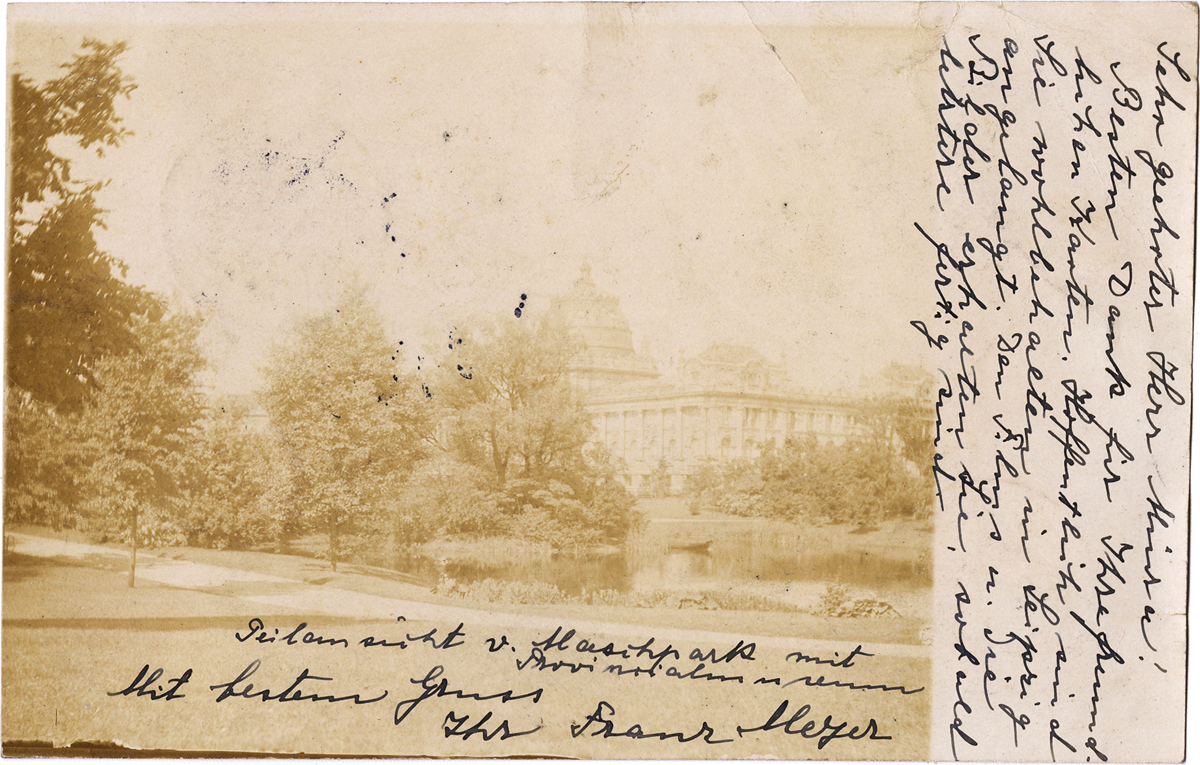 Sehr geehrter Herr Heinze!
Besten Dank für Ihre freund-
lichen Karten. Hoffentlich sind
Sie wohlbehalten in Leipzig
angelangt. Den Film s u. die
Bilder erhalten Sie, sobald
letztere fertig sind.
Teilansicht v. Maschpark mit
Provinzialmuseum
Mit bestem Gruss
Ihr Franz Meyer